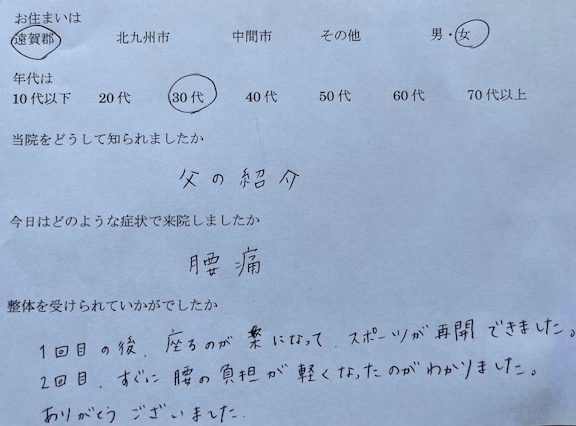 お住まいは
遠賀郡 北九州市 中間市 その他 男・女
年代は
10代以下 20代 30代 40代 50代 60代 70代以上
当院をどうして知られましたか
父の紹介
今日はどのような症状で来院しましたか
腰痛
整体を受けられていかがでしたか
1回目の後、座るのが楽になって、スポーツが再開できました。
2回目、すぐに腰の負担が軽くなったのがわかりました。
ありがとうございました.